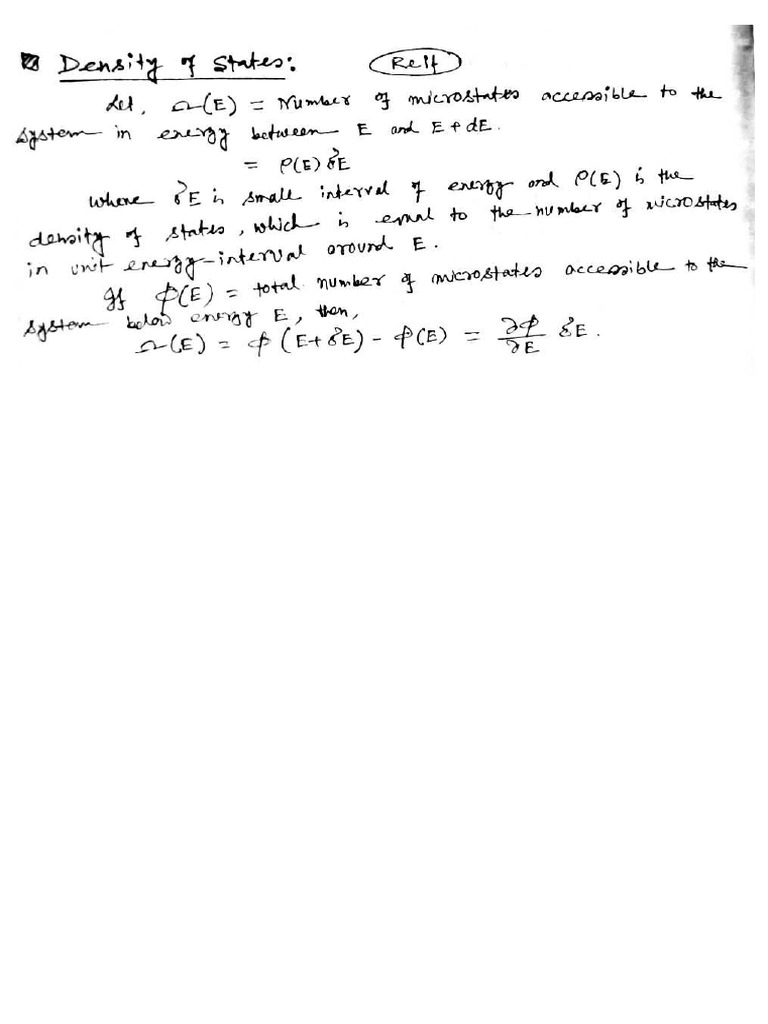 Density of States: Reif
Let, Ω(E) = Number of microstates accessible to the
system in energy between E and E + dE.
= ρ(E) δE
where δE is small interval of energy and ρ(E) is the
density of states, which is equal to the number of microstates
in unit energy-interval around E.
If φ(E) = total number of microstates accessible to the
system below energy E, then,
Ω(E) = φ(E + δE) - φ(E) = ∂φ/∂E δE.